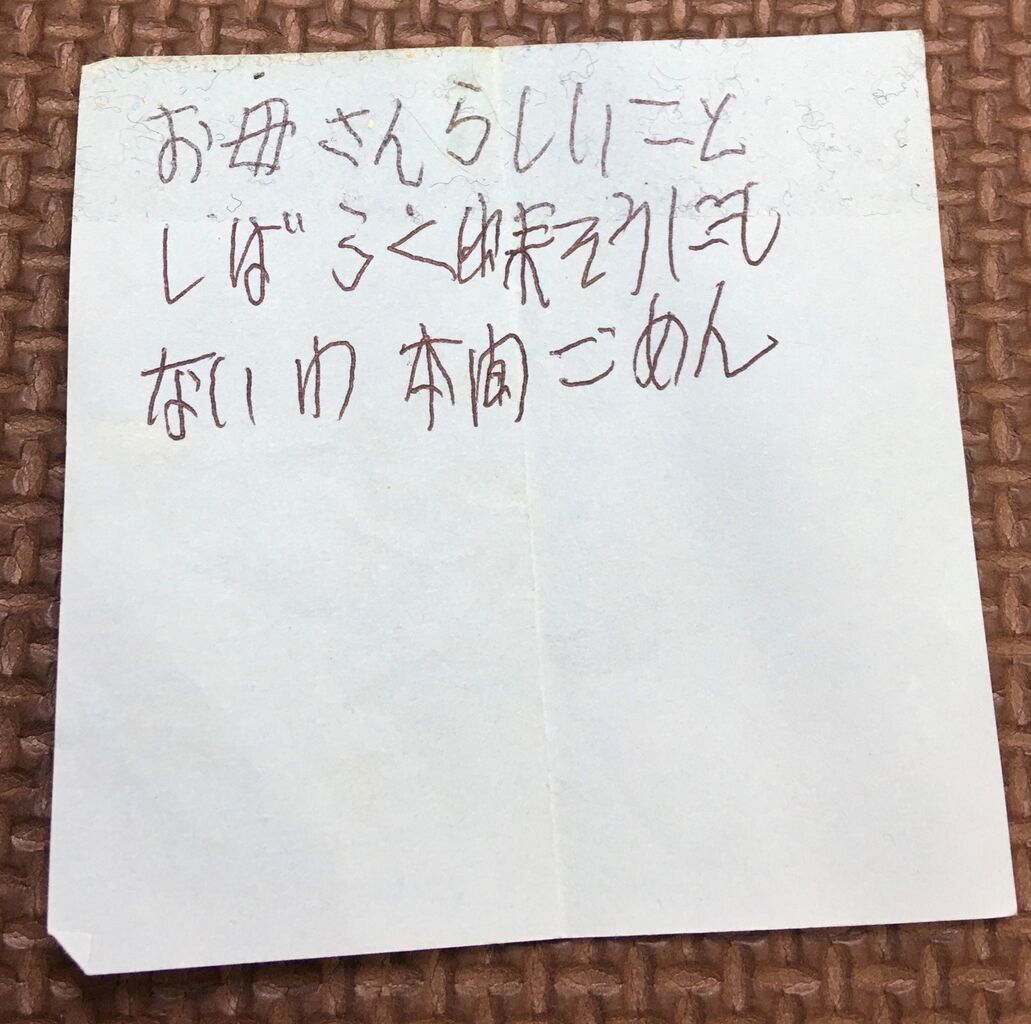 お母さんらしいこと
しばらく出来そうにも
ないわ 本間ごめん